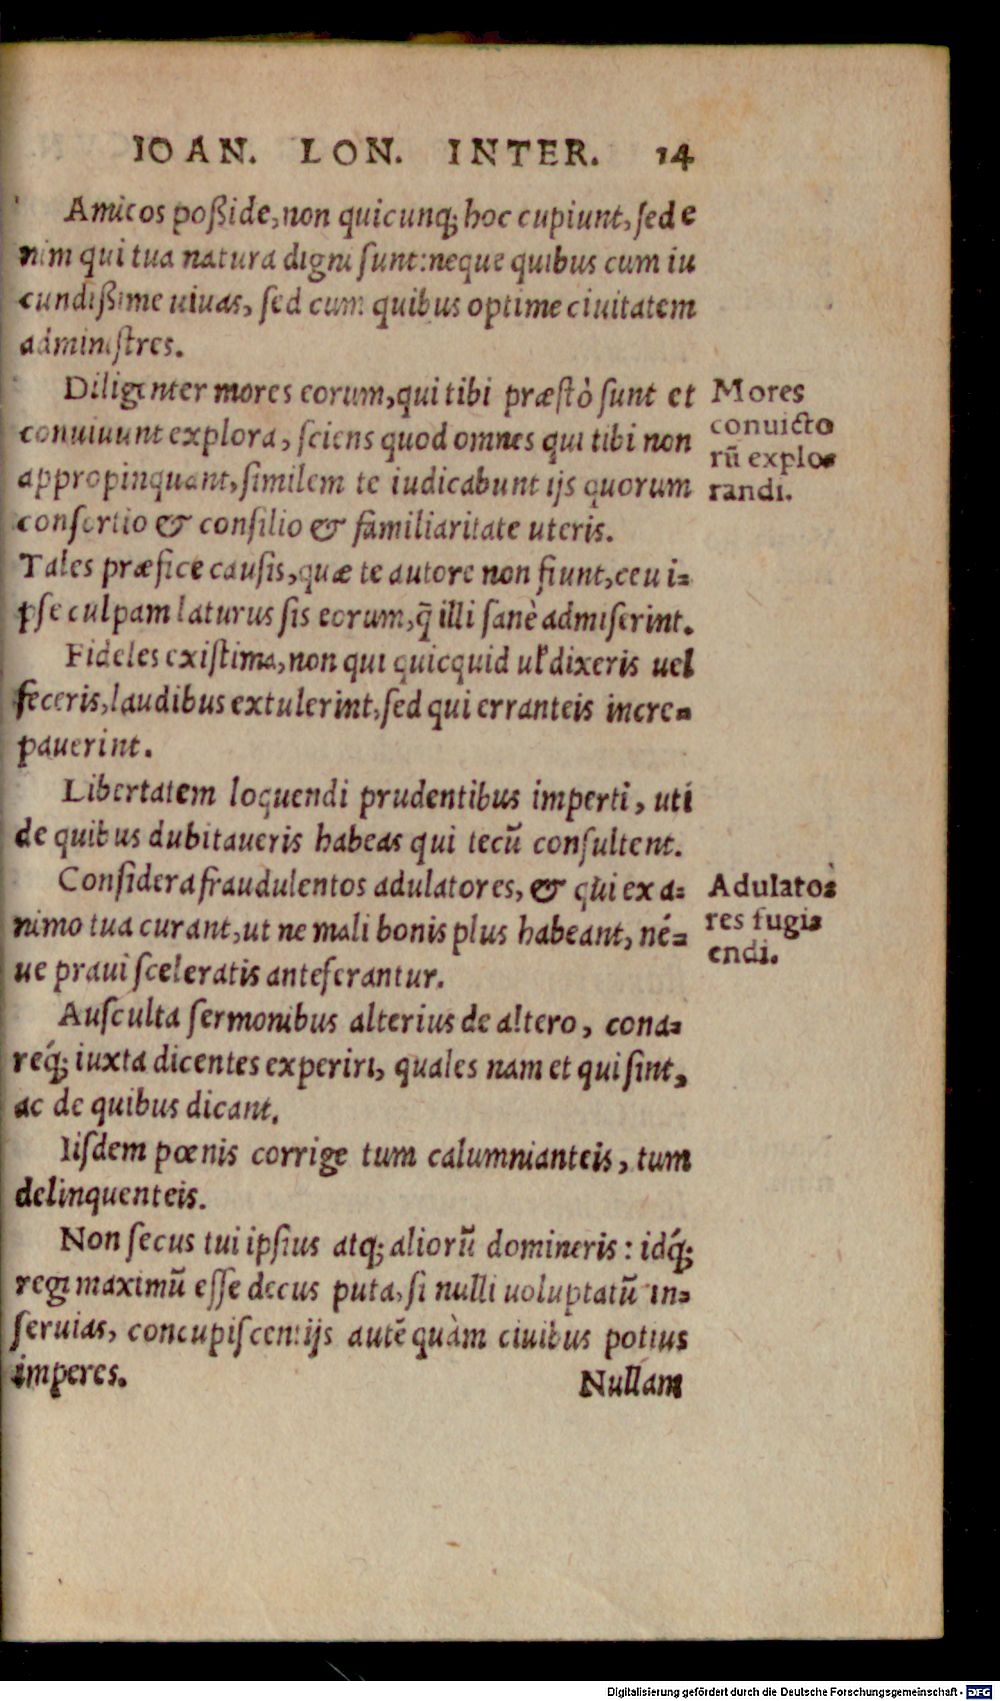 IOAN. LON. INTER. 14
Amicos poßide, non quicunq; hoc cupiunt, sed e
nim qui tua natura digni sunt: neque quibus cum iu
cundißime uiuas, sed cum quibus optime ciuitatem
administres.
Diligenter mores eorum, qui tibi præstò sunt et
conuiuunt explora, sciens quod omnes qui tibi non
appropinquant, similem te iudicabunt ijs quorum
consortio & consilio & familiaritate uteris.
Mores
conuicto
rũ explo-
randi.
Tales præfice causis, quæ te autore non fiunt, ceu i-
pse culpam laturus sis eorum, q̃ illi sanè admiserint.
Fideles existima, non qui quicquid ul' dixeris uel
feceris, laudibus extulerint, sed qui erranteis incre-
pauerint.
Libertatem loquendi prudentibus imperti, uti
de quibus dubitaueris habeas qui tecũ consultent.
Considera fraudulentos adulatores, & qui ex a-
nimo tua curant, ut ne mali bonis plus habeant, né-
ue praui sceleratis anteferantur.
Adulato-
res fugi-
endi.
Ausculta sermonibus alterius de altero, cona-
réq; iuxta dicentes experiri, quales nam et qui sint,
ac de quibus dicant.
Iisdem pœnis corrige tum calumnianteis, tum
delinquenteis.
Non secus tui ipsius atq; aliorũ domineris: idq́;
regi maximũ esse decus puta, si nulli uoluptatũ in-
seruias, concupiscentijs autẽ quàm ciuibus potius
imperes.
Nullam
Digitalisierung gefördert durch die Deutsche Forschungsgemeinschaft - DFG